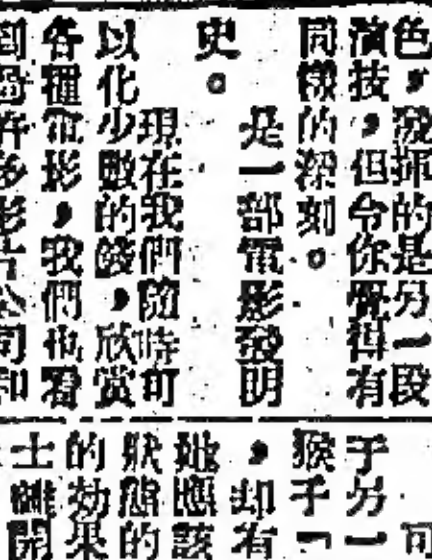 色，發揮的是另一段
演技，但令你覺得有
同樣的深刻。
是一部電影發明
史。
現在我們隨時可
以化少數的錢，欣賞
各種電影，我們也看
到過許多影片公司和
可
子另一
猴子「
，却有
地應該
狀態的
的効果
士離開